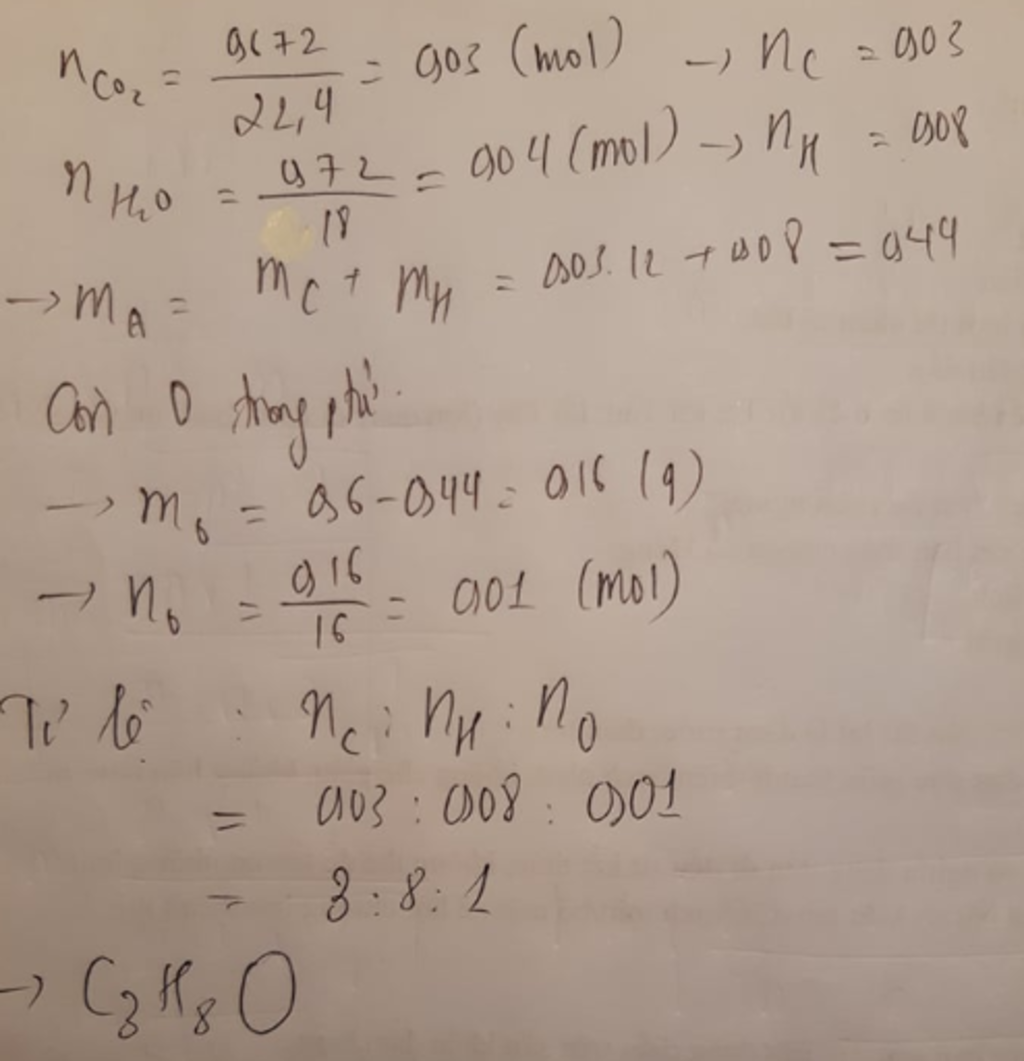 n_CO₂ = 0,672/22,4 = 0,03 (mol) → n_C = 0,03
n_H₂O = 0,72/18 = 0,04 (mol) → n_H = 0,08
→ m_A = m_C + m_H = 0,03.12 + 0,08 = 0,44
Còn O trong ptử.
→ m_O = 0,6 - 0,44 = 0,16 (g)
→ n_O = 0,16/16 = 0,01 (mol)
Tỉ lệ : n_C : n_H : n_O
= 0,03 : 0,08 : 0,01
= 3 : 8 : 1
→ C₃H₈O